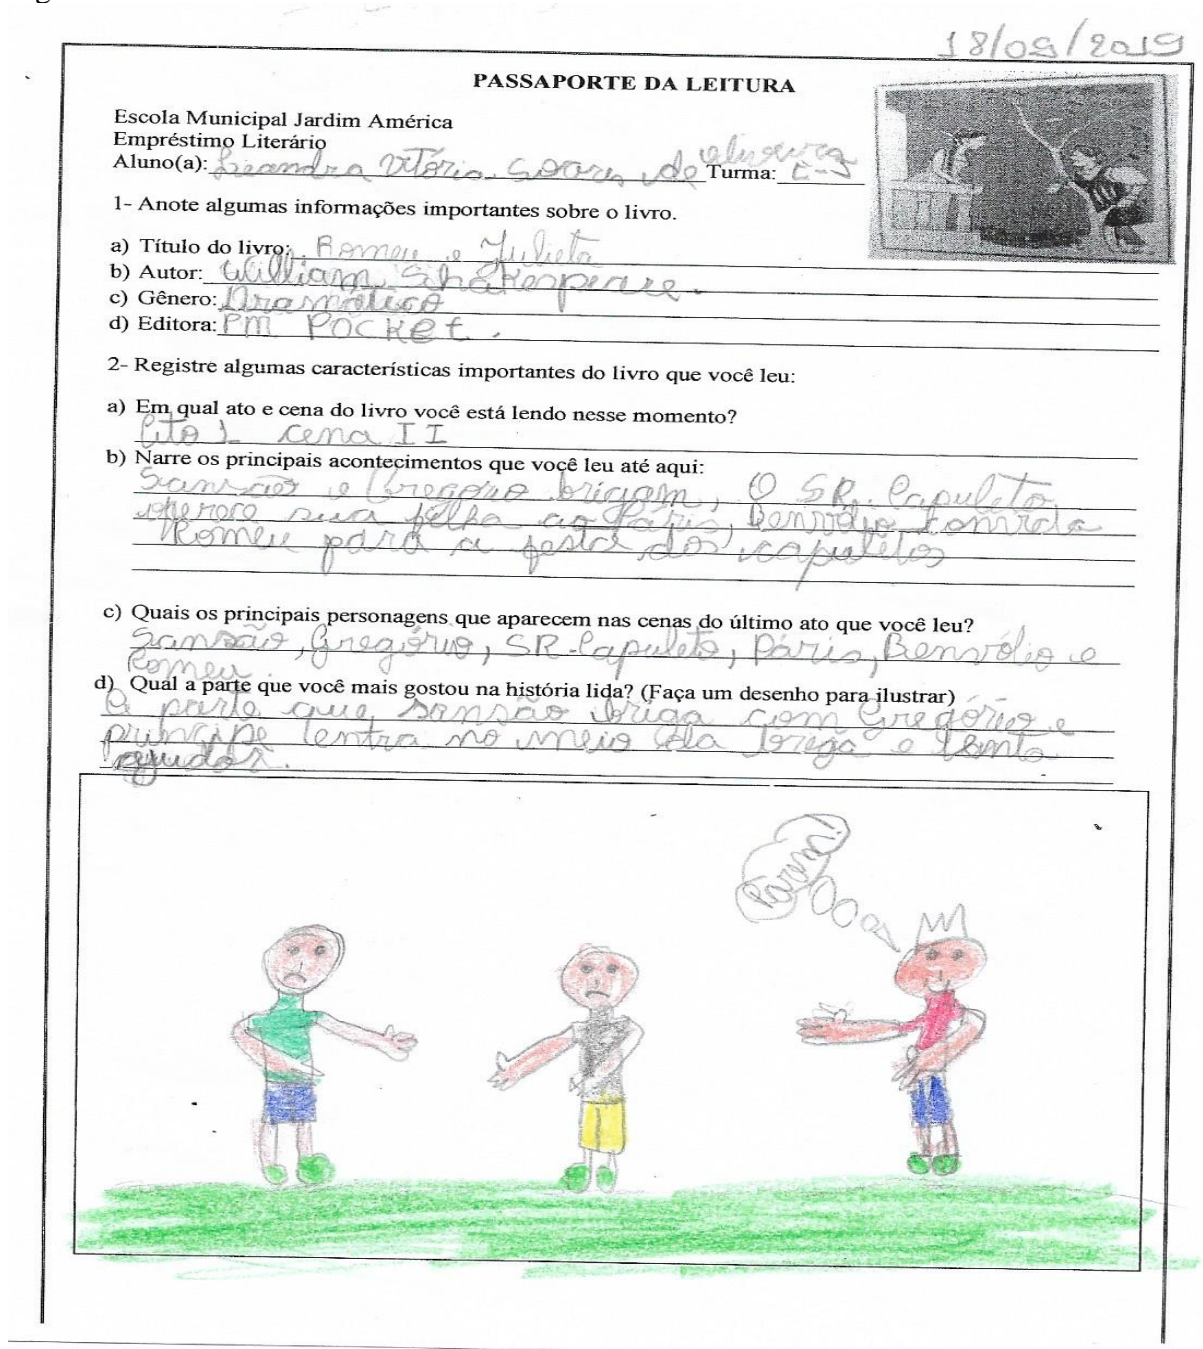 18/09/2019
PASSAPORTE DA LEITURA
Escola Municipal Jardim América
Empréstimo Literário
Aluno(a): Leandra Vitória Soares de oliveira Turma:
1- Anote algumas informações importantes sobre o livro.
a) Título do livro: Romeu e Julieta
b) Autor: William Shakespeare.
c) Gênero: Dramático
d) Editora: PM POCKET.
2- Registre algumas características importantes do livro que você leu:
a) Em qual ato e cena do livro você está lendo nesse momento?
Ato 1 cena II
b) Narre os principais acontecimentos que você leu até aqui:
Sansão e Gregório brigam, O SR. Capuleto
oferece sua filha ao Páris, Benvólio convida
Romeu para a festa dos capuletos
c) Quais os principais personagens que aparecem nas cenas do último ato que você leu?
Sansão, Gregório, SR. Capuleto, Páris, Benvólio e
Romeu.
d) Qual a parte que você mais gostou na história lida? (Faça um desenho para ilustrar)
A parte que sansão briga com Gregório e
principe entra no meio da briga e tenta
ajudar.
Parem!